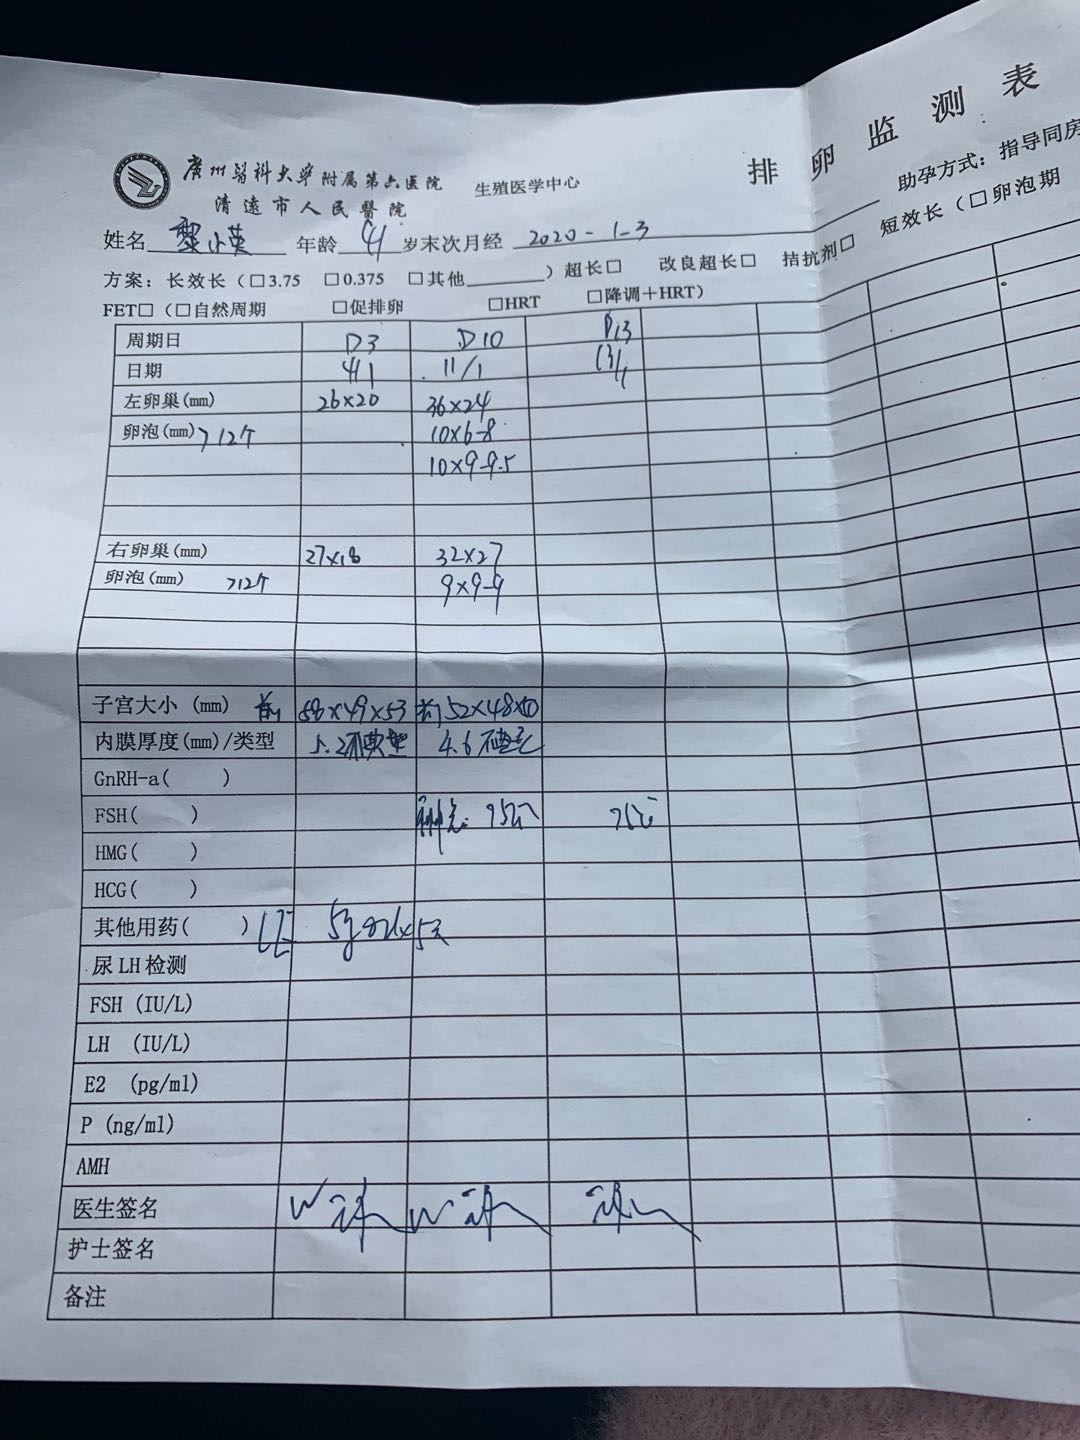 排卵监测表
廣州醫科大學附属第六医院 生殖医学中心
清遠市人民醫院
助孕方式：指导同房
姓名 黎小英 年龄 41 岁末次月经 2020-1-3
方案：长效长（□3.75 □0.375 □其他 ）超长□ 改良超长□ 拮抗剂□ 短效长（□卵泡期
FET□（□自然周期 □促排卵 □HRT □降调＋HRT）
周期日 D3 D10 D13
日期 4/1 11/1 13/1
左卵巢(mm) 26×20 36×24
卵泡(mm) >12个 10×6-8
10×9-9.5
右卵巢(mm) 27×18 32×27
卵泡(mm) >12个 9×9-9
子宫大小 (mm) 前 58×49×53 前 52×48×
内膜厚度(mm)/类型 5.2不典型 4.6
GnRH-a( )
FSH( ) 75 75
HMG( )
HCG( )
其他用药( ) LE 5 ×5天
尿 LH 检测
FSH (IU/L)
LH (IU/L)
E2 (pg/ml)
P (ng/ml)
AMH
医生签名
护士签名
备注